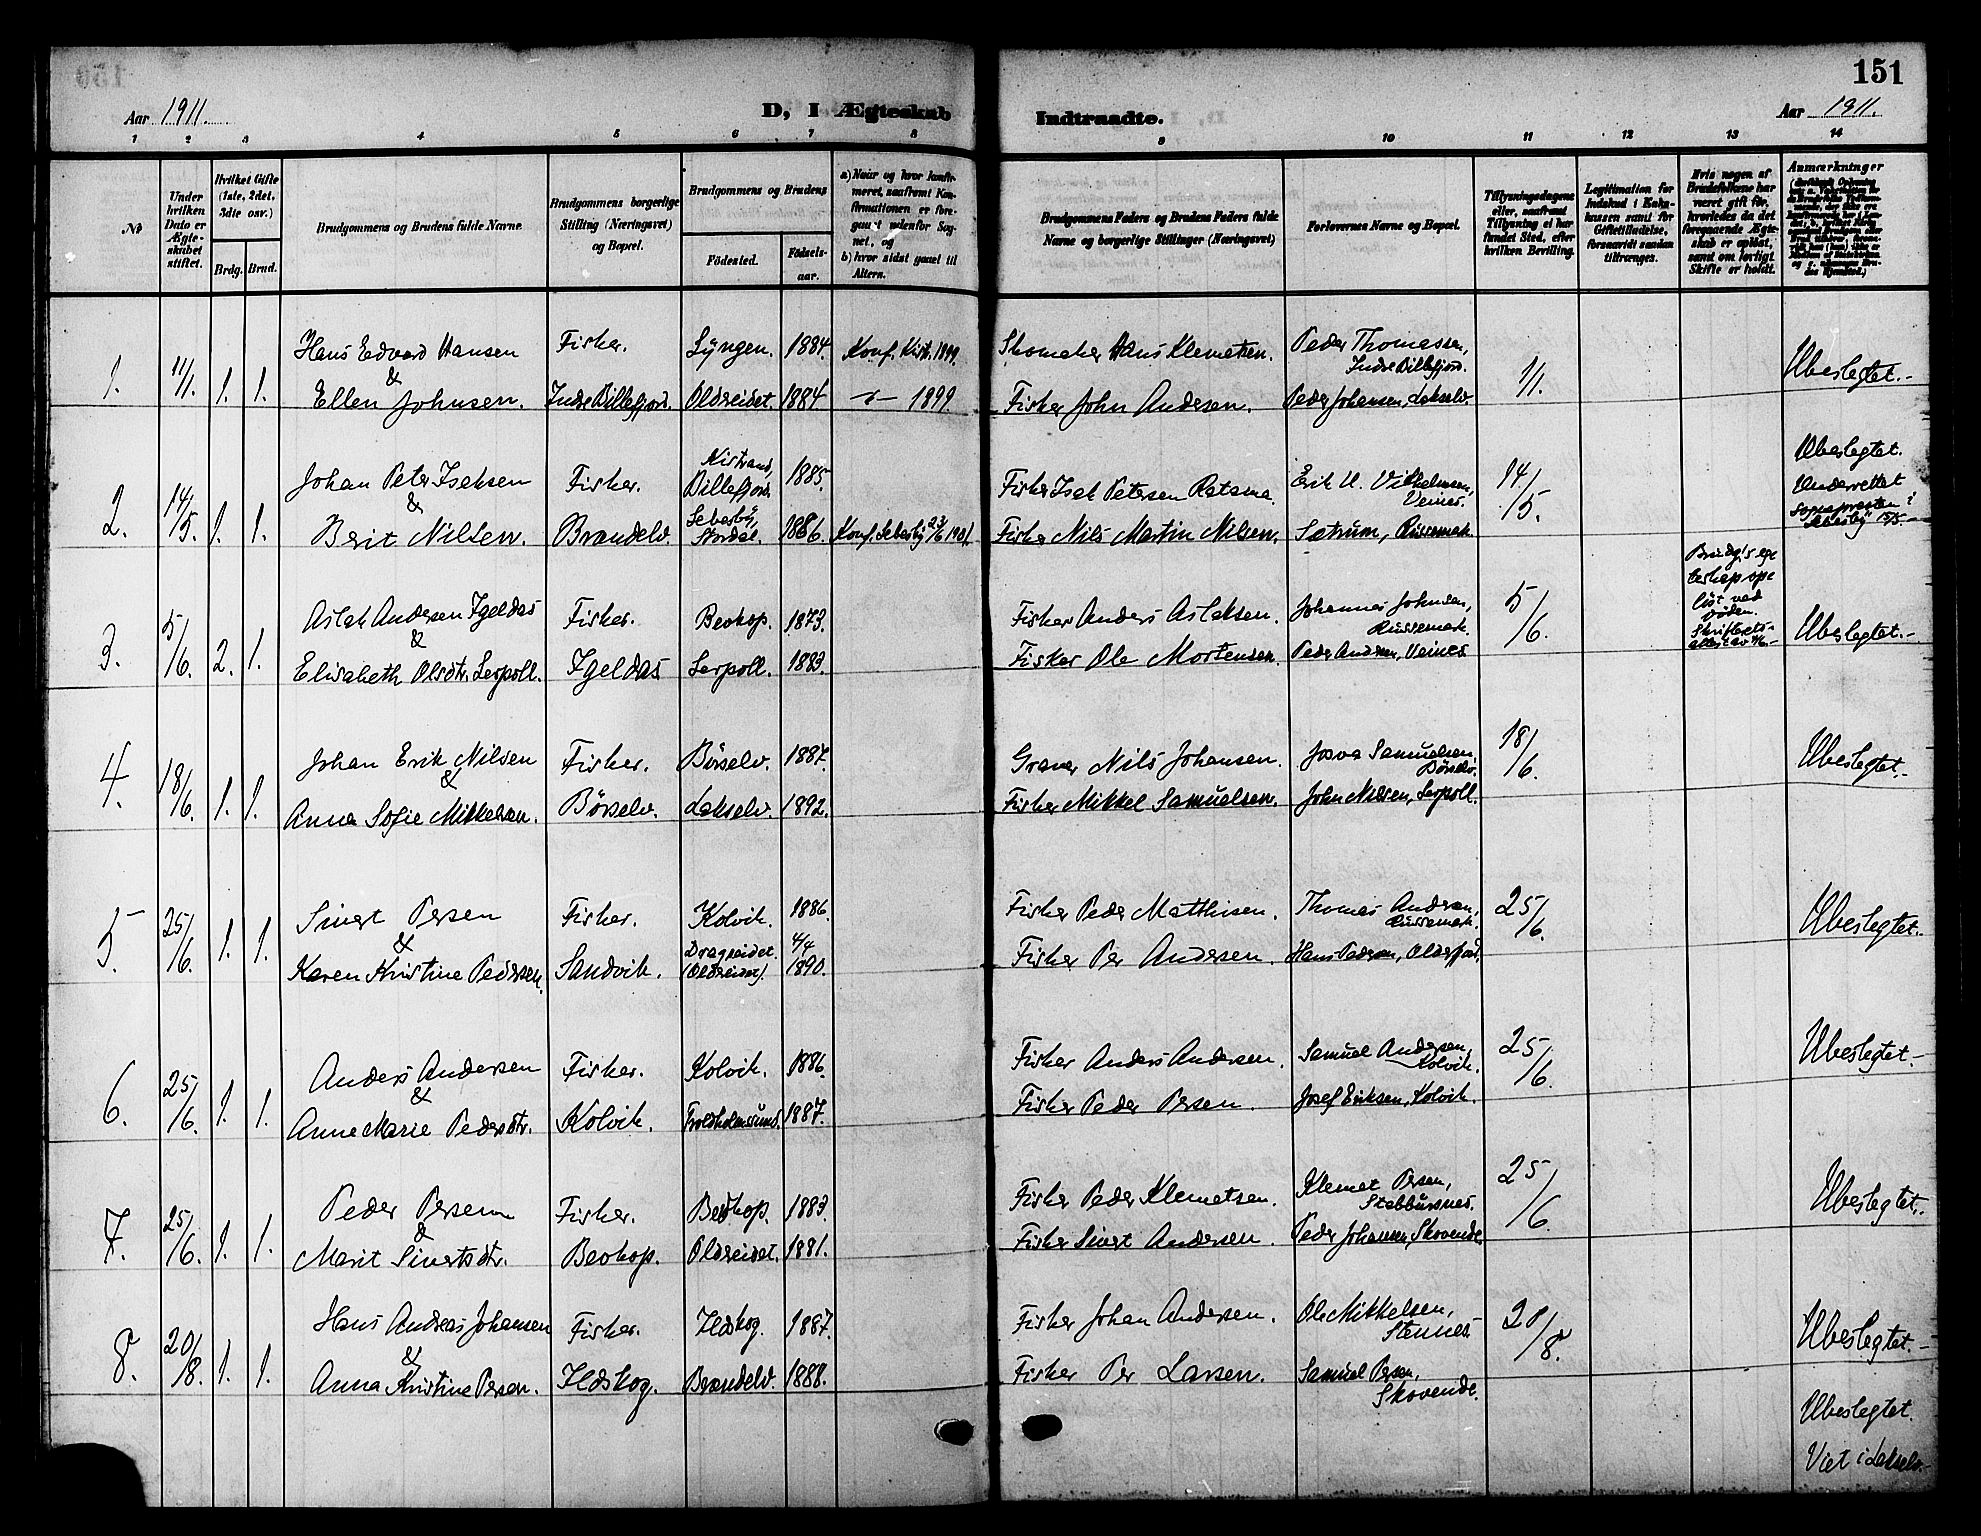 151
Aar 1911.
D, I Ægteskab Indtraadte.
Aar 1911.
1 2 3 4 5 6 7 8 9 10 11 12 13 14
№
Under hvilken Dato er Ægteskabet stiftet.
Hvilket Gifte (1ste, 2det, 3dte osv.)
Brdg. Brud.
Brudgommens og Brudens fulde Navne.
Brudgommens borgerlige Stilling (Næringsvei) og Bopæl.
Brudgommens og Brudens
Fødested.
Fødselsaar.
a) Naar og hvor konfirmeret, saafremt Konfirmationen er foregaaet udenfor Sognet, og
b) hvor sidst gaaet til Alters.
Brudgommens Faders og Brudens Faders fulde Navne og borgerlige Stillinger (Næringsvei)
Forlovernes Navne og Bopæl.
Tillysningsdagene eller, saafremt Tillysning ei har fundet Sted, efter hvilken Bevilling.
Legitimation for Indskud i Enkekassen samt for Giftetilladelse, forsaavidt saadan tiltrænges.
Hvis nogen af Brudefolkene har været gift før, hvorledes da det foregaaende Ægteskab er opløst, samt om lovligt Skifte er holdt.
Anmærkninger
1. 11/1. 1. 1. Hans Edvard Hansen Fisker. Lyngen. 1884. Konf. Kistr. 1899. Skomaker Hans Klemetsen. Peder Thomassen, Indre Billefjord. 1/1. Ubeslegtet.-
&
Ellen Johnsen. Indre Billefjord. Oldreidet. 1884. -"- 1899. Fisker John Andersen. Peder Johansen, Lakselv.
2. 14/5. 1. 1. Johan Peter Isaksen Fisker. Kistrand, Billefjord. 1885. Fisker Isak Petersen Ratama. Erik U. Vilhelmsen, Veines. 14/5. Ubeslegtet.
Underrettet sognepresten i Sebesby 15/5-
&
Berit Nilsen. Brandelv. Sebesby, Nordal. 1886. Konf. Sebesby 23/6 1901. Fisker Nils Martin Nilsen. Sætrum, Russemark.
3. 5/6. 2. 1. Aslak Andersen Igeldas Fisker. Beokop. 1873. Fisker Anders Aslaksen. Johannes Johnsen, Russemark. 5/6. Brudg.'s egteskap opløst ved døden. Ubeslegtet.-
&
Elisabeth Olsdtr. Lerpoll. Igeldas Lerpoll. 1883. Fisker Ole Mortensen. Peder Andersen, Veines
4. 18/6. 1. 1. Johan Erik Nilsen Fisker. Børselv. 1887. Graver Nils Johansen. Josva Samuelsen, Børselv. 18/6. Ubeslegtet.-
&
Anna Sofie Mikkelsen. Børselv. Lakselv. 1892. Fisker Mikkel Samuelsen. John Nilsen, Lerpoll.
5. 25/6. 1. 1. Sivert Persen Fisker. Kolvik. 1886. Fisker Peder Matthisen. Thomas Andersen, Russemark. 25/6. Ubeslegtet.-
&
Karen Kristine Pedersen. Sandvik. Dragreidet. (Oldreidet) 4/4 1890. Fisker Per Andersen. Hans Pedersen, Olderfjord.
6. 25/6. 1. 1. Anders Andersen Fisker. Kolvik. 1886. Fisker Anders Andersen. Samuel Andersen, Kolvik. 25/6. Ubeslegtet.-
&
Anne Marie Pedersdtr. Kolvik. Troldholmsund. 1887. Fisker Peder Persen. Josef Eriksen, Kolvik.
7. 25/6. 1. 1. Peder Persen Fisker. Beokop. 1883. Fisker Peder Klemetsen. Klemet Persen, Stabbursnes. 25/6. Ubeslegtet.-
&
Marit Sivertsdtr. Beokop. Oldreidet. 1881. Fisker Sivert Andersen. Peder Johansen, Skovende.
8. 20/8. 1. 1. Hans Andreas Johansen Fisker. Ildskog. 1887. Fisker Johan Andersen. Ole Mikkelsen, Stennes 20/8. Ubeslegtet.-
&
Anna Kristine Persen. Ildskog. Brandelv. 1888. Fisker Per Larsen. Samuel Persen, Skovende.
Ubeslegtet.
Viet i Lakselv.-